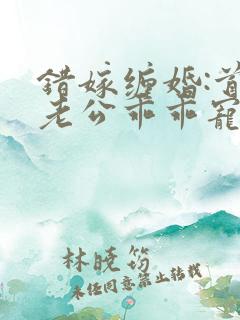 错嫁缠婚:首
老公乖乖宠
林晓筠
未经同意禁止转载